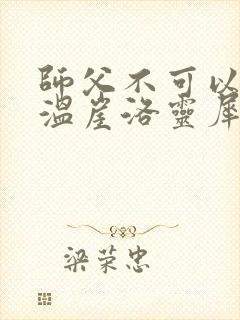 師父不可以
溫崖洛靈犀
梁荣忠